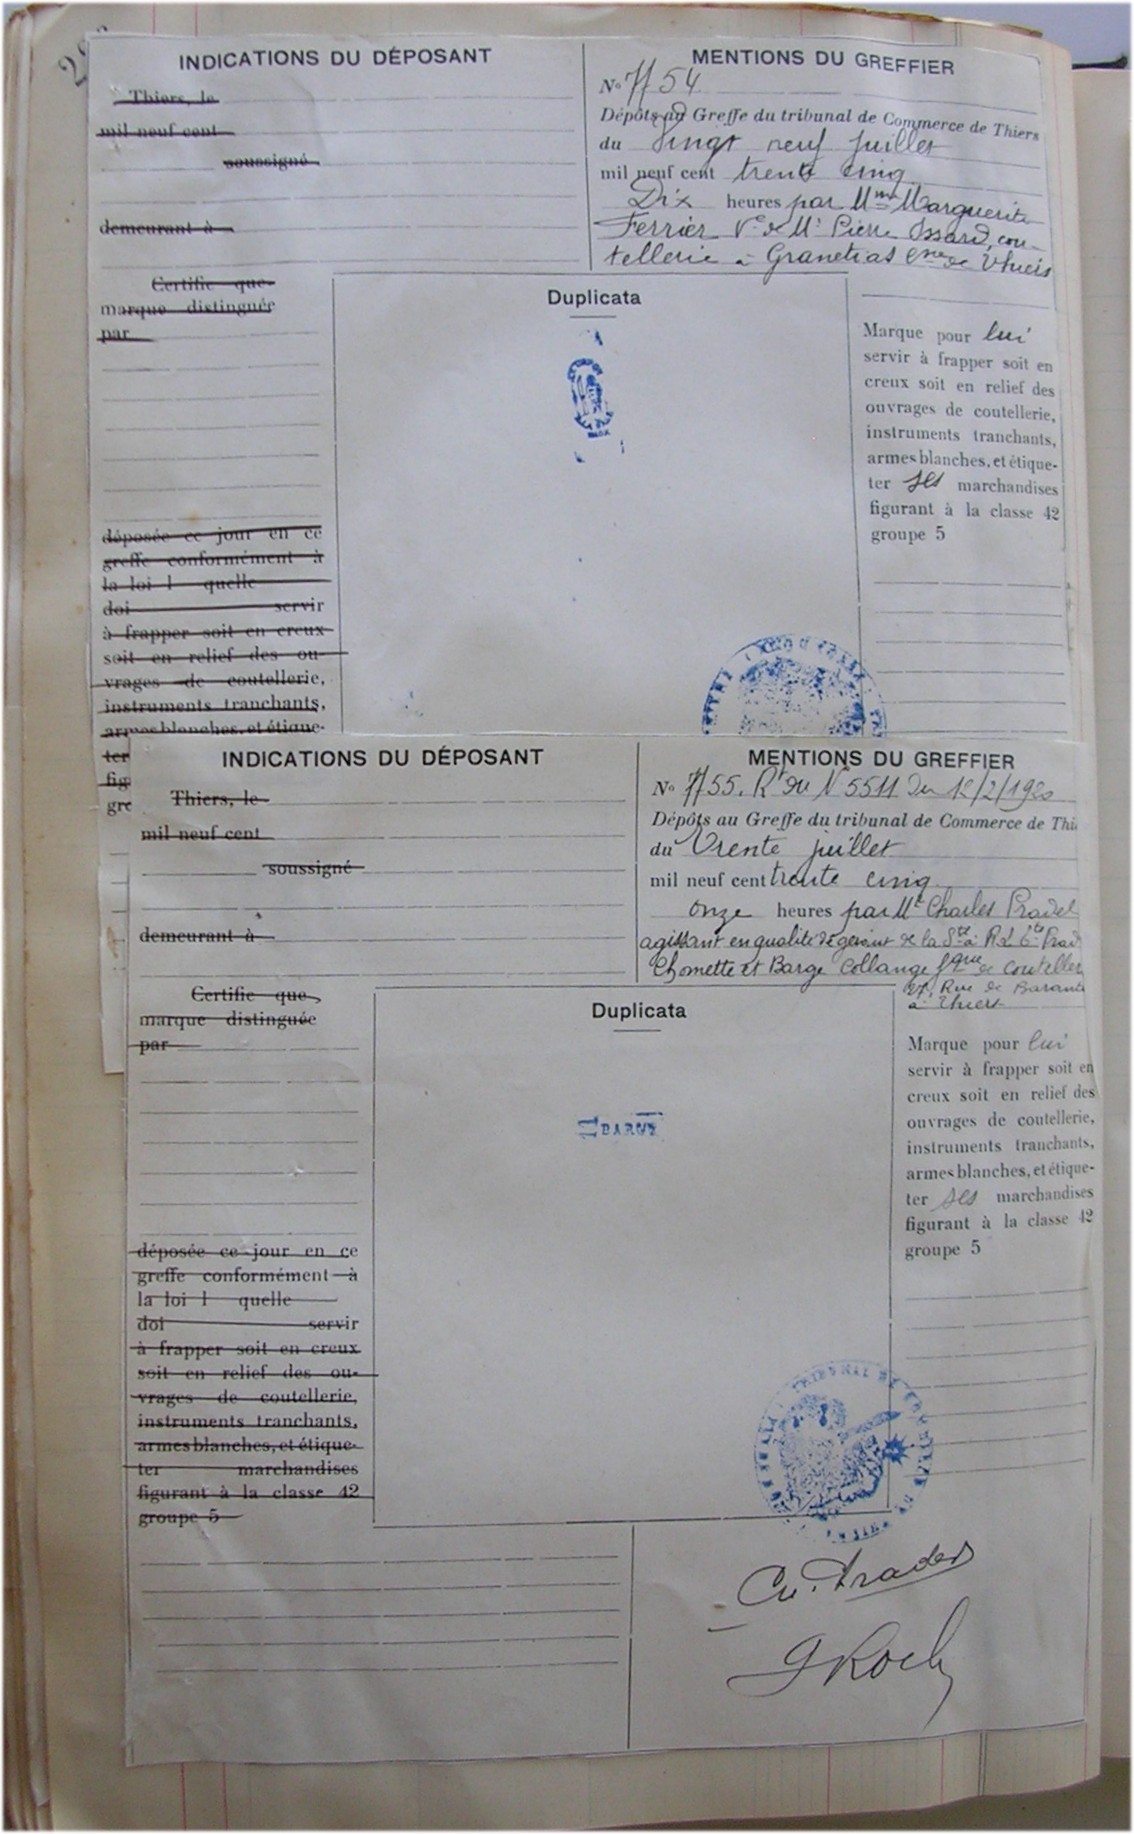 INDICATIONS DU DÉPOSANT
Thiers, le
mil neuf cent
soussigné
demeurant à
Certifie que
marque distinguée
par
déposée ce jour en ce
greffe conformément à
la loi l quelle
doi servir
à frapper soit en creux
soit en relief des ou-
vrages de coutellerie,
instruments tranchants,
armes blanches, et étique-
ter
fig
gre
MENTIONS DU GREFFIER
No 7754
Dépôts au Greffe du tribunal de Commerce de Thiers
du Vingt neuf juillet
mil neuf cent trente cinq
Dix heures par Mme Marguerite
Ferrier Ve de Mr Pierre Ossard, cou-
tellerie à Granetias Cne de Thiers
Duplicata
Marque pour lui
servir à frapper soit en
creux soit en relief des
ouvrages de coutellerie,
instruments tranchants,
armes blanches, et étique-
ter ses marchandises
figurant à la classe 42
groupe 5
INDICATIONS DU DÉPOSANT
Thiers, le
mil neuf cent
soussigné
demeurant à
Certifie que
marque distinguée
par
déposée ce jour en ce
greffe conformément à
la loi l quelle
doi servir
à frapper soit en creux
soit en relief des ou-
vrages de coutellerie,
instruments tranchants,
armes blanches, et étique-
ter marchandises
figurant à la classe 42
groupe 5
MENTIONS DU GREFFIER
No 7755. Rt du No 5511 du 12/2/1920
Dépôts au Greffe du tribunal de Commerce de Thi
du Trente juillet
mil neuf cent trente cinq
onze heures par Mr Charles Pradel
agissant en qualité de gérant de la Sté à R L Ets Prad
Chomette et Barge Collange fque de couteller
27, Rue de Barante
à Thiers
Duplicata
BARGE
Marque pour lui
servir à frapper soit en
creux soit en relief des
ouvrages de coutellerie,
instruments tranchants,
armes blanches, et étique-
ter ses marchandises
figurant à la classe 42
groupe 5
TRIBUNAL DE COMMERCE DE